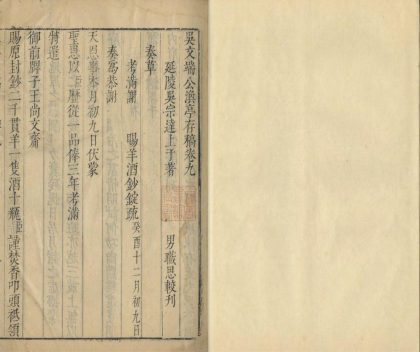 吳文端公渙亭存稿卷九
延陵吳宗達上于著　男職思較刊
奏草
考滿謝　賜羊酒鈔錠疏癸酉十二月初九日
奏為恭謝
天恩事本月初九日伏蒙
聖恩以臣歷從一品俸三年考滿
特遣
御前牌子王尚文齎
賜原封鈔二千貫羊一隻酒十瓶臣謹焚香叩頭祗領